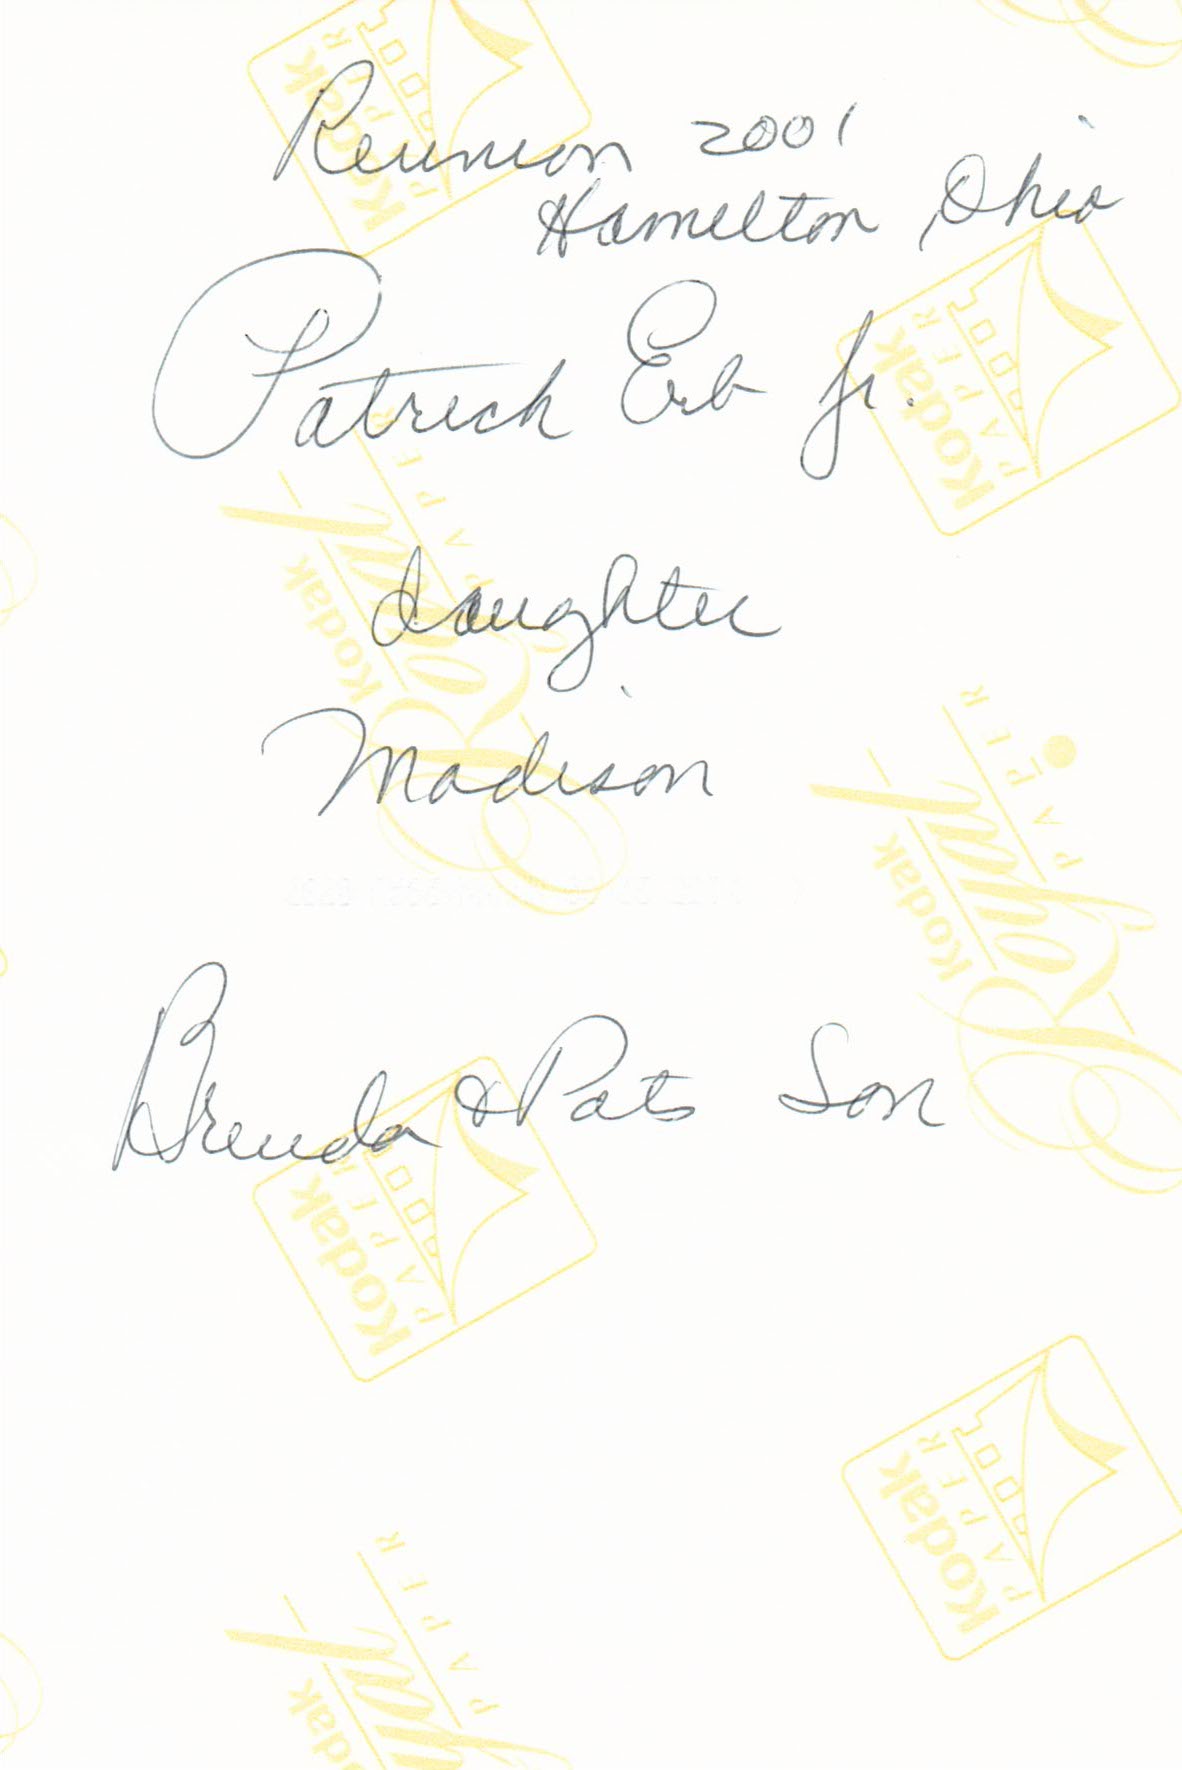 Reunion 2001
Hamilton, Ohio
Patrick Erb Jr.
daughter
Madison
Brenda & Pats Son
Kodak
PAPER
Kodak
PAPER
Kodak
Royal
PAPER
Kodak
Royal
PAPER
Kodak
PAPER
Kodak
PAPER
Kodak
Royal
PAPER